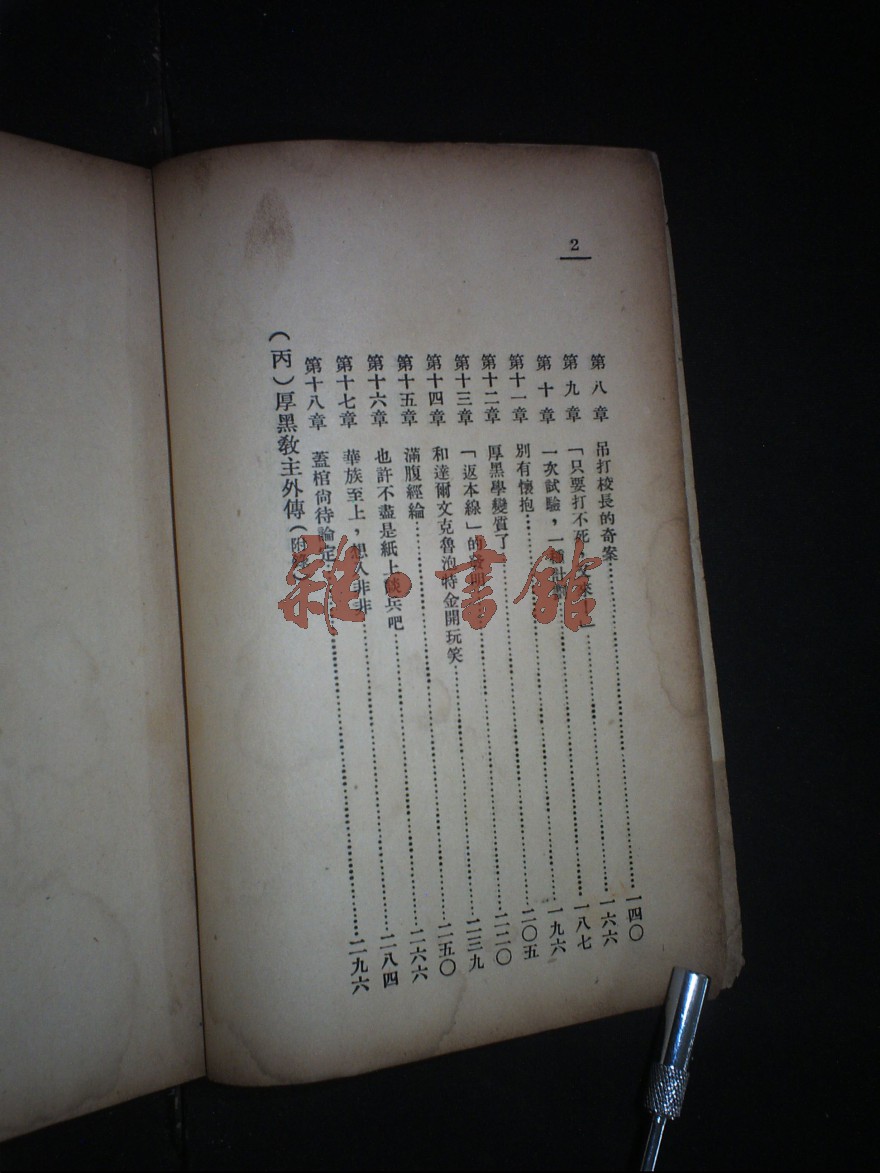 2
第八章 吊打校長的奇案……一四〇
第九章 「只要打不死，又來」……一六六
第十章 一次試驗，一種……一八七
第十一章 別有懷抱……一九六
第十二章 厚黑學變質了……二〇五
第十三章 「返本線」的……二二〇
第十四章 和達爾文克魯泡特金開玩笑……二三九
第十五章 滿腹經綸……二五〇
第十六章 也許不盡是紙上談兵吧……二六六
第十七章 華族至上，想入非非……二八四
第十八章 蓋棺尚待論定……二九六
（丙）厚黑教主外傳（附錄）
雜·書館